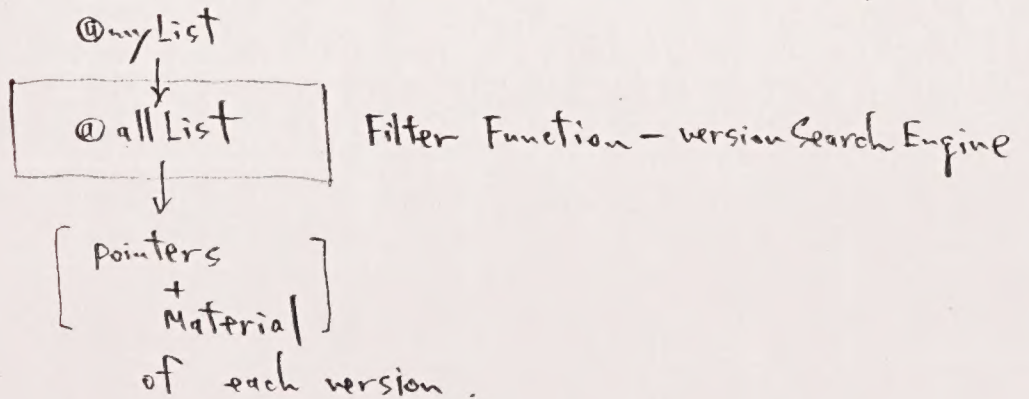 @myList
@allList Filter Function - versionSearch Engine
pointers
+
Material
of each version.